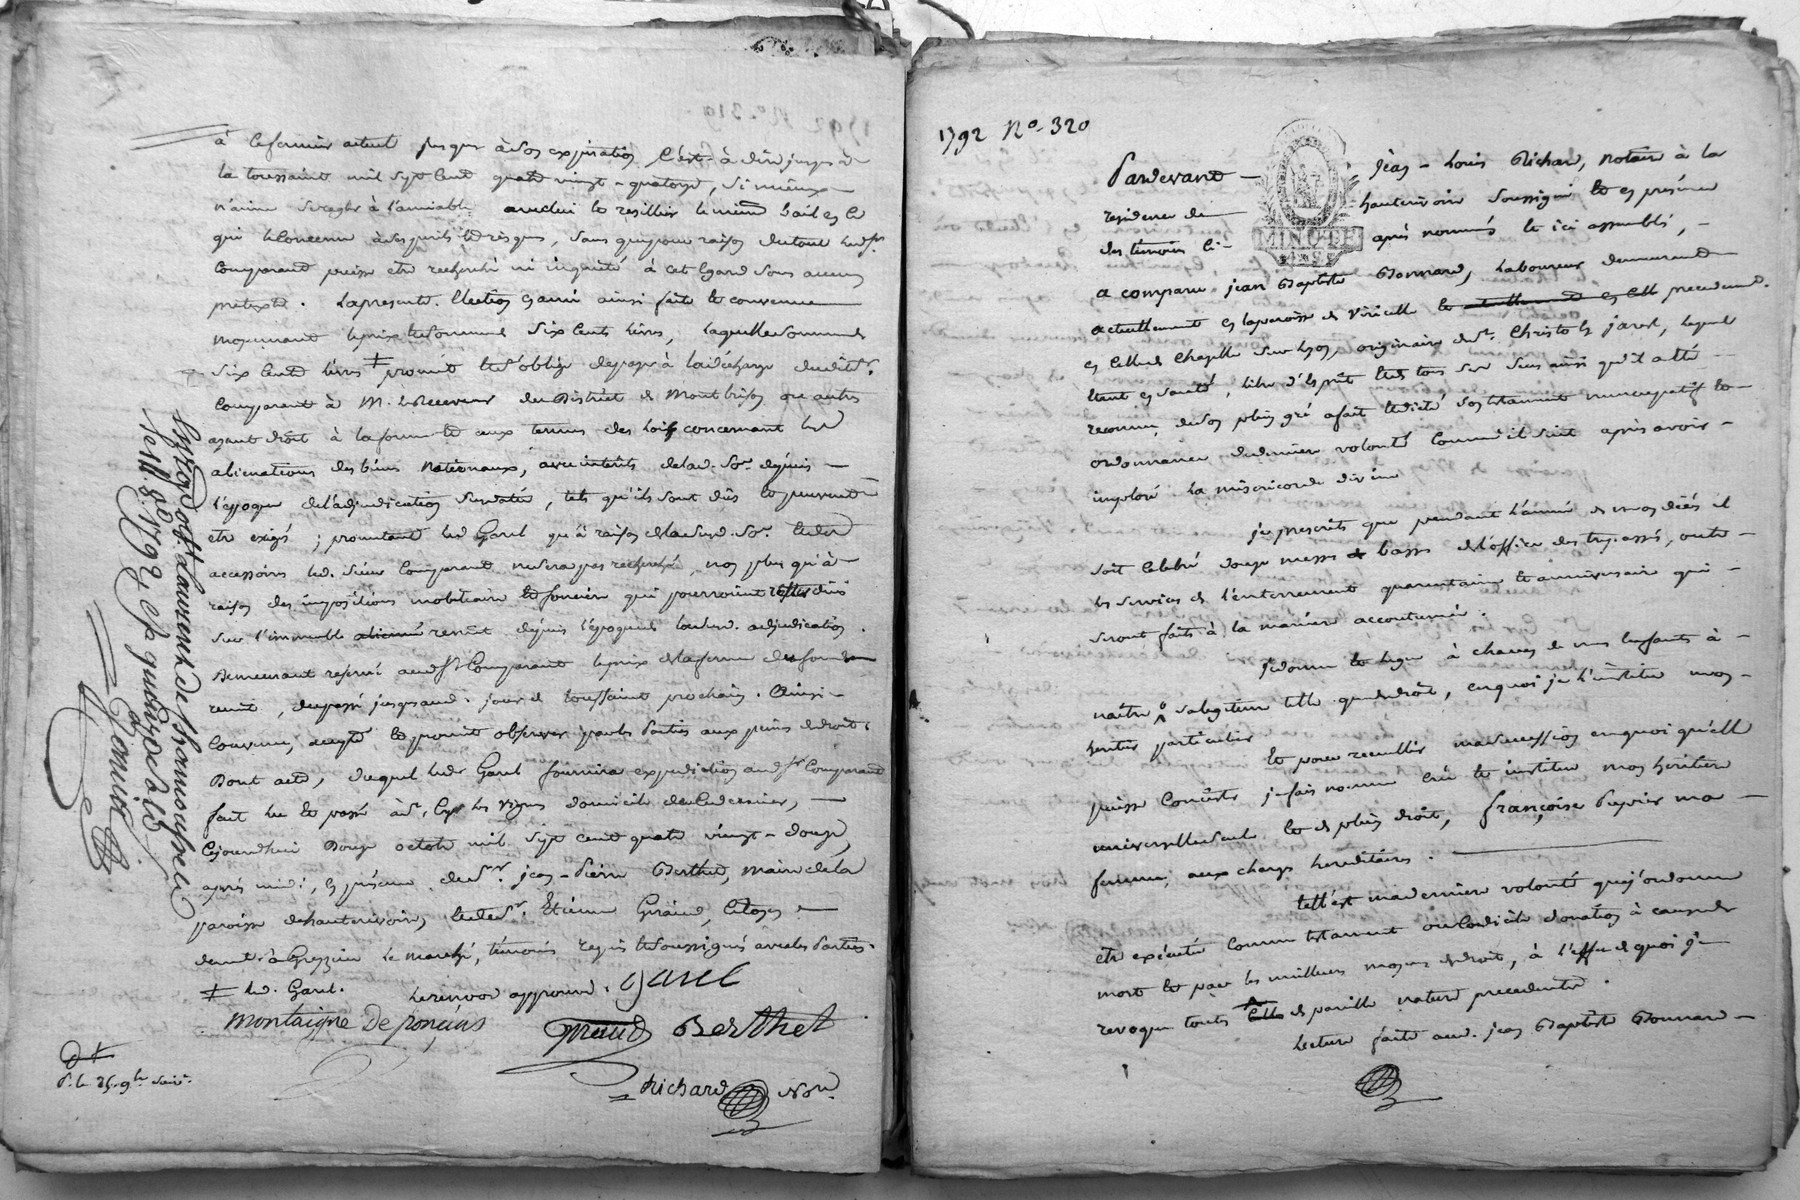 à le fermier actuel jusques à son expiration c'est-à-dire jusqu'à
la toussaint mil sept cent quatre vingt-quatorze, si mieux
n'aime se regler à l'amiable avec lui et resillier le même bail en ce
qui le concerne à ses perils et risques, sans que pour raison du tout led. Sr.
Comparant puisse etre recherché ni inquiété à cet égard sous aucun
pretexte. La presente Election en ami ainsi faite et convenue
moyennant le prix et somme de six cents livres, laquelle somme de
six cents livres ǂ promet et s'oblige de payer à la décharge dudit Sr.
Comparant à M. le Receveur du District de Montbrison ou autres
ayant droit à la forme et aux termes des loix concernant les
alienations des biens Nationaux, avec intérêts de lad. So. depuis
l'époque de l'adjudication susdatée, tels qu'ils sont dûs et peuvent
etre exigés ; promettant led. Garel qu'à raison de la susd. So. et des
accessoires led. Sieur Comparant ne sera pas recherché, non plus qu'à
raison des impositions mobiliaire et fonciere qui pourroient etre dûs
sur l'immeuble remit depuis l'époque de la susd. adjudication.
Demeurant reservé aud. Sr. Comparant le prix de la ferme du fond
remit, du passé jusqu'aud. jour de Toussaint prochain. Ainsi
Convenu, accepté et promit observer par les Parties aux peines de droit.
Dont acte, duquel led. Garel fournira expedition aud. Sr. Comparant
fait lu et passé à St. Cyr les Vignes domicile de ce dernier,
Cejourd'hui Douze octobre mil sept cent quatre vingt-douze,
après midi, en présence de Sr. jean-Pierre Berthet, maire de la
paroisse de hauterivoire, et de Sr. Etienne Giraud, Citoyen
demt. à Grezieu le marché, témoins requis et soussignés avec les Parties.
ǂ led. Garel. le renvoi approuvé. Garel
montaigne De poncins Giraud Berthet
Richard Nore.
Dt
P. le 25. 9bre suivt.
1792 No. 320
Pardevant Jean-Louis Richard, notaire à la
residence de hauterivoire soussigné et en présence
des témoins ci-après nommés et ici assemblés,
MINUTE
a comparu jean Baptiste Bonnard, laboureur demeurant
actuellement en la paroisse de Viricelle et precedemment
en celle de Chapelle sur Lyon, originaire de St. Christo le jarest, lequel
etant en santé, libre d'esprit et de tous ses sens ainsi qu'il a été
reconnu, de son plein gré a fait et dicté son testament nuncupatif et
ordonnance de derniere volonté comme il suit après avoir
imploré la misericorde divine
je prescrits que pendant l'année de mon décés il
soit celebré douze messes basses de l'office des trepassés, outre
les services de l'enterrement quarantaine et anniversaire qui
seront faits à la maniere accoutumée.
Je donne et legue à chacun de mes enfants à
naître sa legitime telle que de droit, en quoi je l'institue mon
heritier particulier
et pour recueillir ma succession en quoi qu'elle
puisse Consister je fais nomme crée et institue mon heritiere
universelle seule et de plein droit, françoise Dupuis ma
femme, aux charges hereditaires.
telle est ma derniere volonté que j'ordonne
etre exécutée comme testament ou Codicile donation à cause de
mort et par les meilleurs moyens de droit, à l'effet de quoi je
revoque toutes de pareille nature precedentes.
Lecture faite aud. jean Baptiste Bonnard